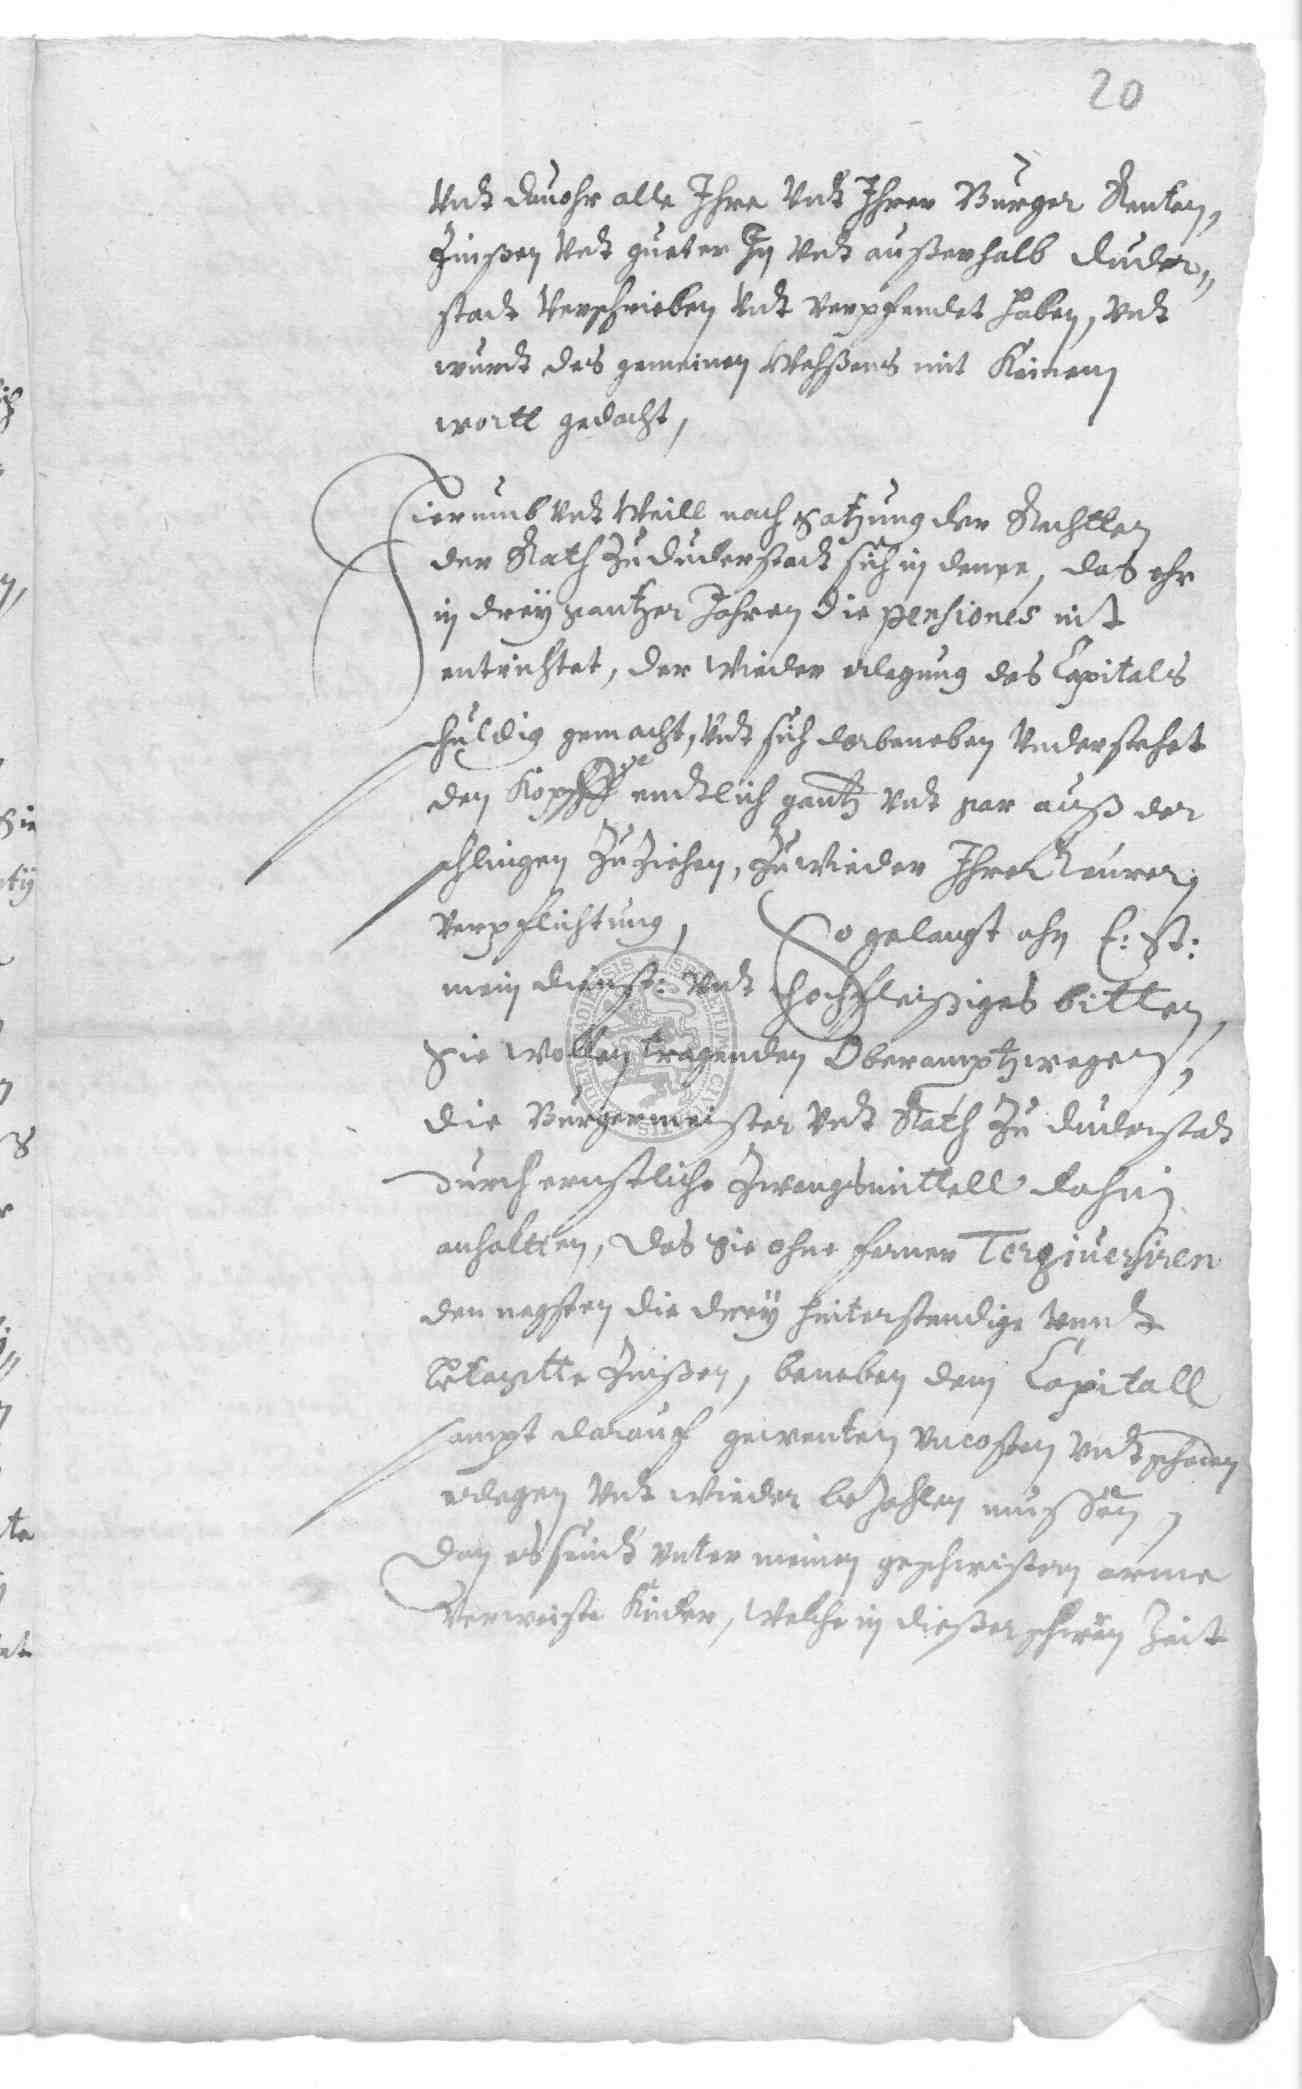 20
Vndt dauohr alle Ihre Vndt Ihrer Burger Renten,
Zinßen Vndt gueter In Vndt außerhalb Duder„
stadt Verschrieben Vndt verpfendet haben, Vndt
wurdt des gemeinen Weßens mit Keinem
wortt gedacht,
Hierumb Vndt Weill nach Satzung der Rechtten
der Rath Zu Duderstadt sich in deme, das ehr
in dreÿ gantzer Jahren die pensiones nit
entrichtet, der Wieder erlegung des Capitals
schuldig gemacht, Vndt sich darbeneben Vnderstehet
den Kopff endtlich gantz Vndt gar auß der
schlingen Zu Ziehen, Zuwieder Ihrer teurer
Verpflichtung, So gelangt ahn E: St:
mein dienst: Vndt hochfleißiges bitten,
Sie wollen tragenden Oberamptzwegen,
die Burgermeister Vndt Rath Zu Duderstadt
durch ernstliche Zwangsmittell dahin
anhaltten, das Sie ohne ferner Tergiuersiren
den negsten die dreÿ hinterstendige Vnndt
betagtte Zinßen, beneben dem Capitall
sampt darauf gewenten Vncosten Vndt schaden
erlegen Vndt wieder bezahlen mussen,
dan es seindt Vnter meinen geschwistern arme
Verweiste Kinder, Welche in dießer schweren Zeit